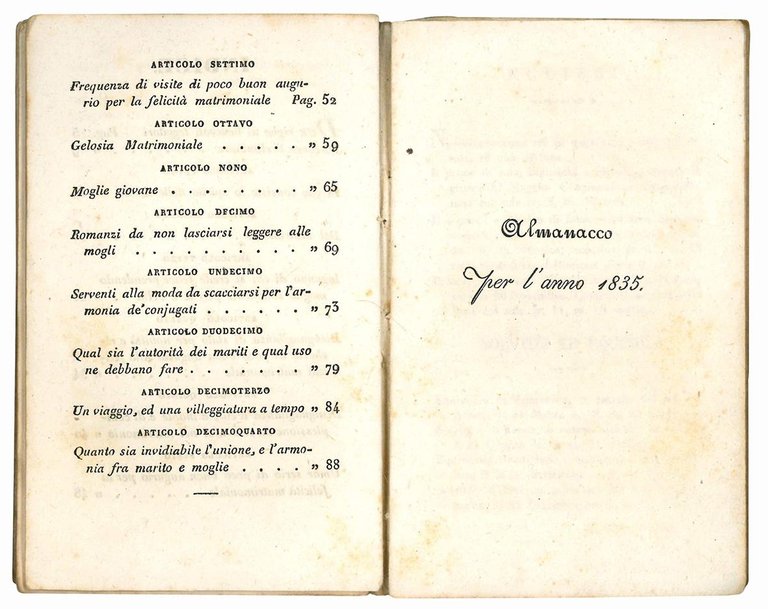 ARTICOLO SETTIMO
Frequenza di visite di poco buon augu-
rio per la felicità matrimoniale Pag. 52
ARTICOLO OTTAVO
Gelosia Matrimoniale . . . . . „ 59
ARTICOLO NONO
Moglie giovane . . . . . . . . „ 65
ARTICOLO DECIMO
Romanzi da non lasciarsi leggere alle
mogli . . . . . . . . . . „ 69
ARTICOLO UNDECIMO
Serventi alla moda da scacciarsi per l'ar-
monia de' conjugati . . . . . . „ 73
ARTICOLO DUODECIMO
Qual sia l'autorità dei mariti e qual uso
ne debbano fare . . . . . . . „ 79
ARTICOLO DECIMOTERZO
Un viaggio, ed una villeggiatura a tempo „ 84
ARTICOLO DECIMOQUARTO
Quanto sia invidiabile l'unione, e l'armo-
nia fra marito e moglie . . . . „ 88
Almanacco
per l'anno 1835.